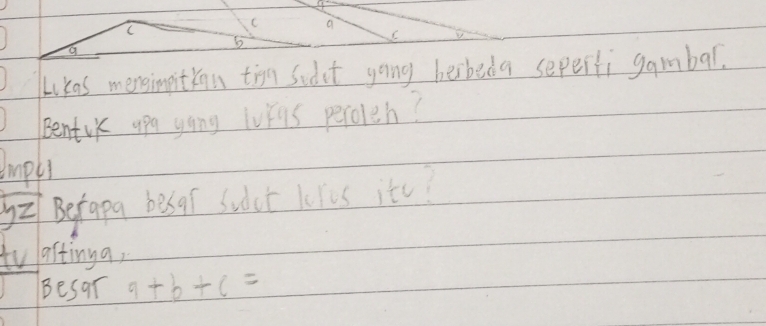 c c a
a b c
Lukas mengimpitkan tiga sudut yang berbeda seperti gambar.
Bentuk apa yang lukas peroleh?
mpu
Berapa besar sudut lurus itu?
artinya,
Besar a + b + c =